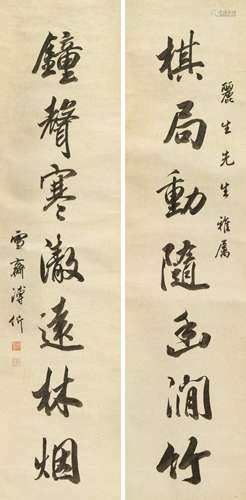 麗生先生雅屬
棋局動隨幽澗竹
鐘聲寒澈遠林烟
雪齋溥伒